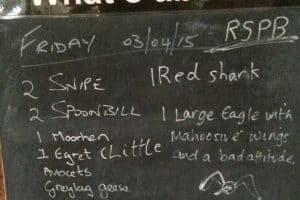 FRIDAY 03/04/15 RSPB
2 SNIPE
2 SPOONBILL
1 Moorhen
1 Egret (Little
Avocets
Greylag geese
1 Red shank
1 Large Eagle with
Mahoosive wings
and a bad attitude